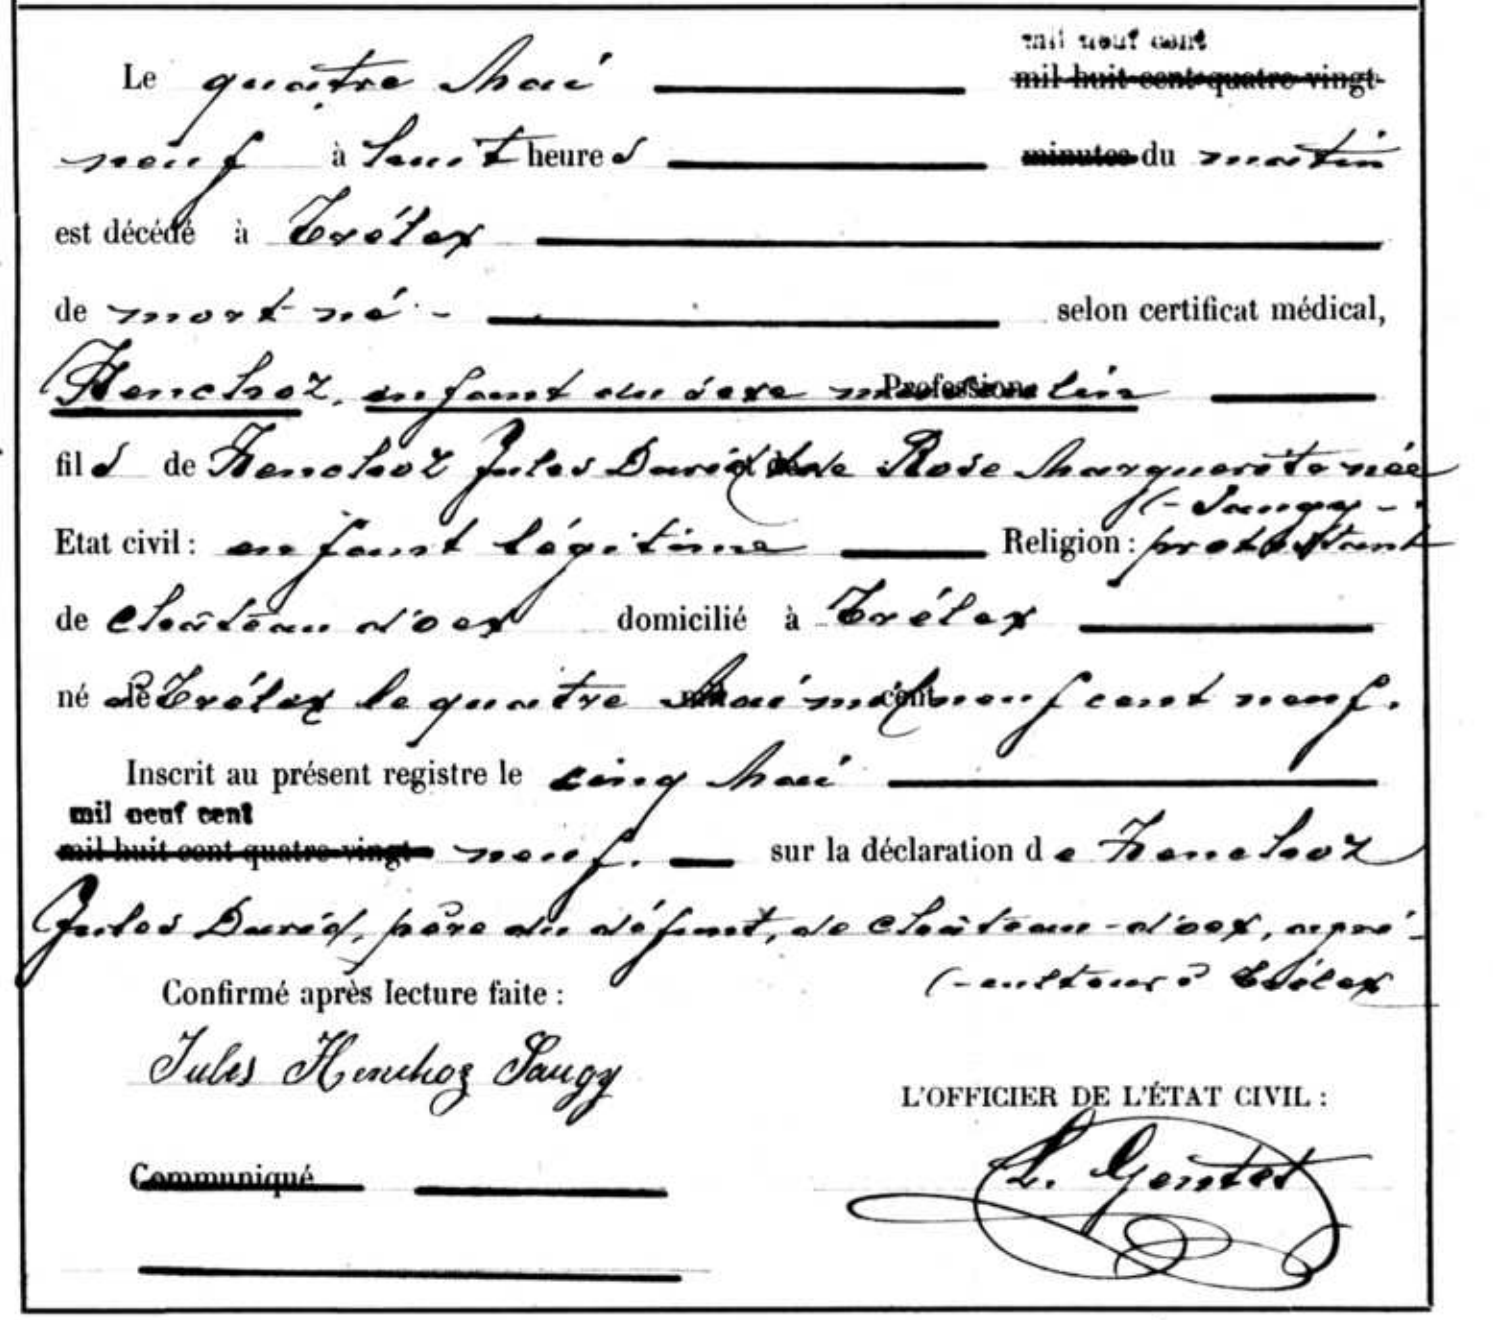 mil neuf cent
Le quatre Mai mil huit cent quatre-vingt-
neuf à huit heures minutes du matin
est décédé à Trélex
de mort-né - selon certificat médical,
Henchoz, enfant du sexe masculin Profession
fils de Henchoz Jules David et de Rose Marguerite née
(- Saugy -
Etat civil : enfant légitime Religion : protestant
de Château d'oex domicilié à Trélex
né à Trélex le quatre Mai mil neuf cent neuf.
Inscrit au présent registre le cinq Mai
mil neuf cent
mil huit cent quatre-vingt- neuf. sur la déclaration de Henchoz
Jules David, père du défunt, de Château-d'oex, agri-
(-culteur à Trélex
Confirmé après lecture faite :
Jules Henchoz Saugy
L'OFFICIER DE L'ÉTAT CIVIL :
L. Gentet
Communiqué